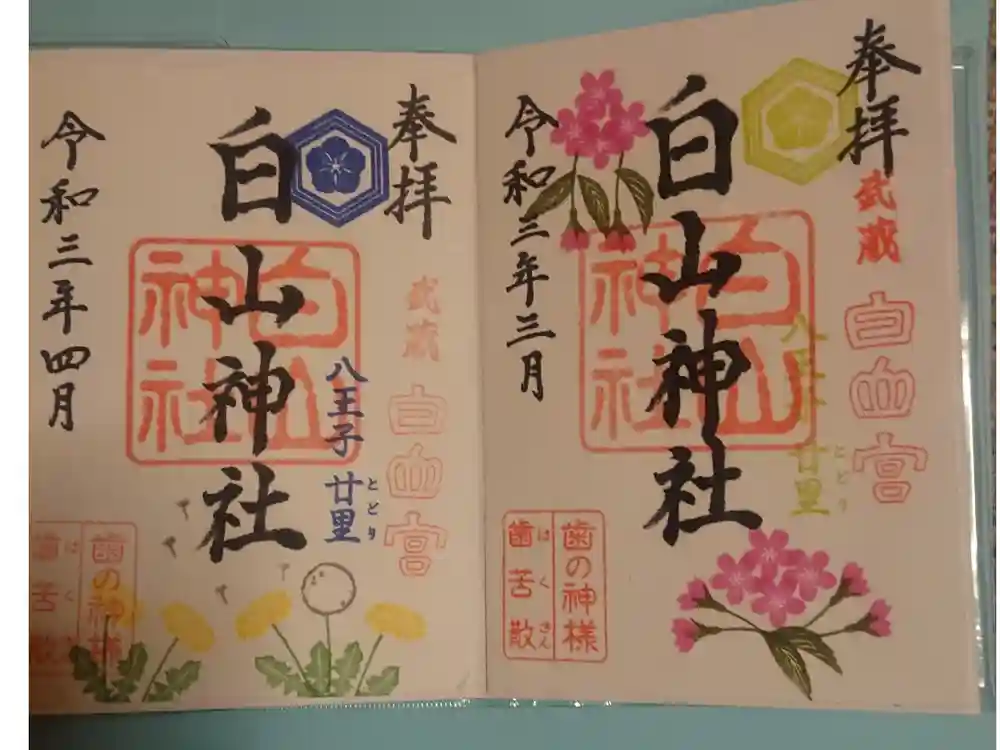 奉拝
武蔵
白血宮
八王子 廿里
とどり
白山神社
白山神社
令和三年三月
歯の神様
歯苦散
はくさん
奉拝
武蔵
白血宮
八王子 廿里
とどり
白山神社
白山神社
令和三年四月
歯の神様
歯苦散
はく